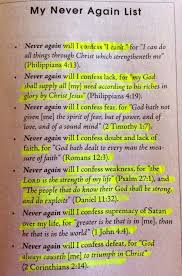 My Never Again List
• Never again will I confess "I can't," for "I can do
all things through Christ which strengtheneth me"
(Philippians 4:13).
• Never again will I confess lack, for "my God
shall supply all [my] need according to his riches in
glory by Christ Jesus" (Philippians 4:19).
• Never again will I confess fear, for "God hath not
given [me] the spirit of fear, but of power, and of
love, and of a sound mind" (2 Timothy 1:7).
• Never again will I confess doubt and lack of
faith, for "God hath dealt to every man the mea-
sure of faith" (Romans 12:3).
• Never again will I confess weakness, for "the
LORD is the strength of my life" (Psalm 27:1), and
"The people that do know their God shall be strong,
and do exploits" (Daniel 11:32).
• Never again will I confess supremacy of Satan
over my life, for "greater is he that is in [me], than
he that is in the world" (1 John 4:4).
• Never again will I confess defeat, for "God
always causeth [me] to triumph in Christ"
(2 Corinthians 2:14).